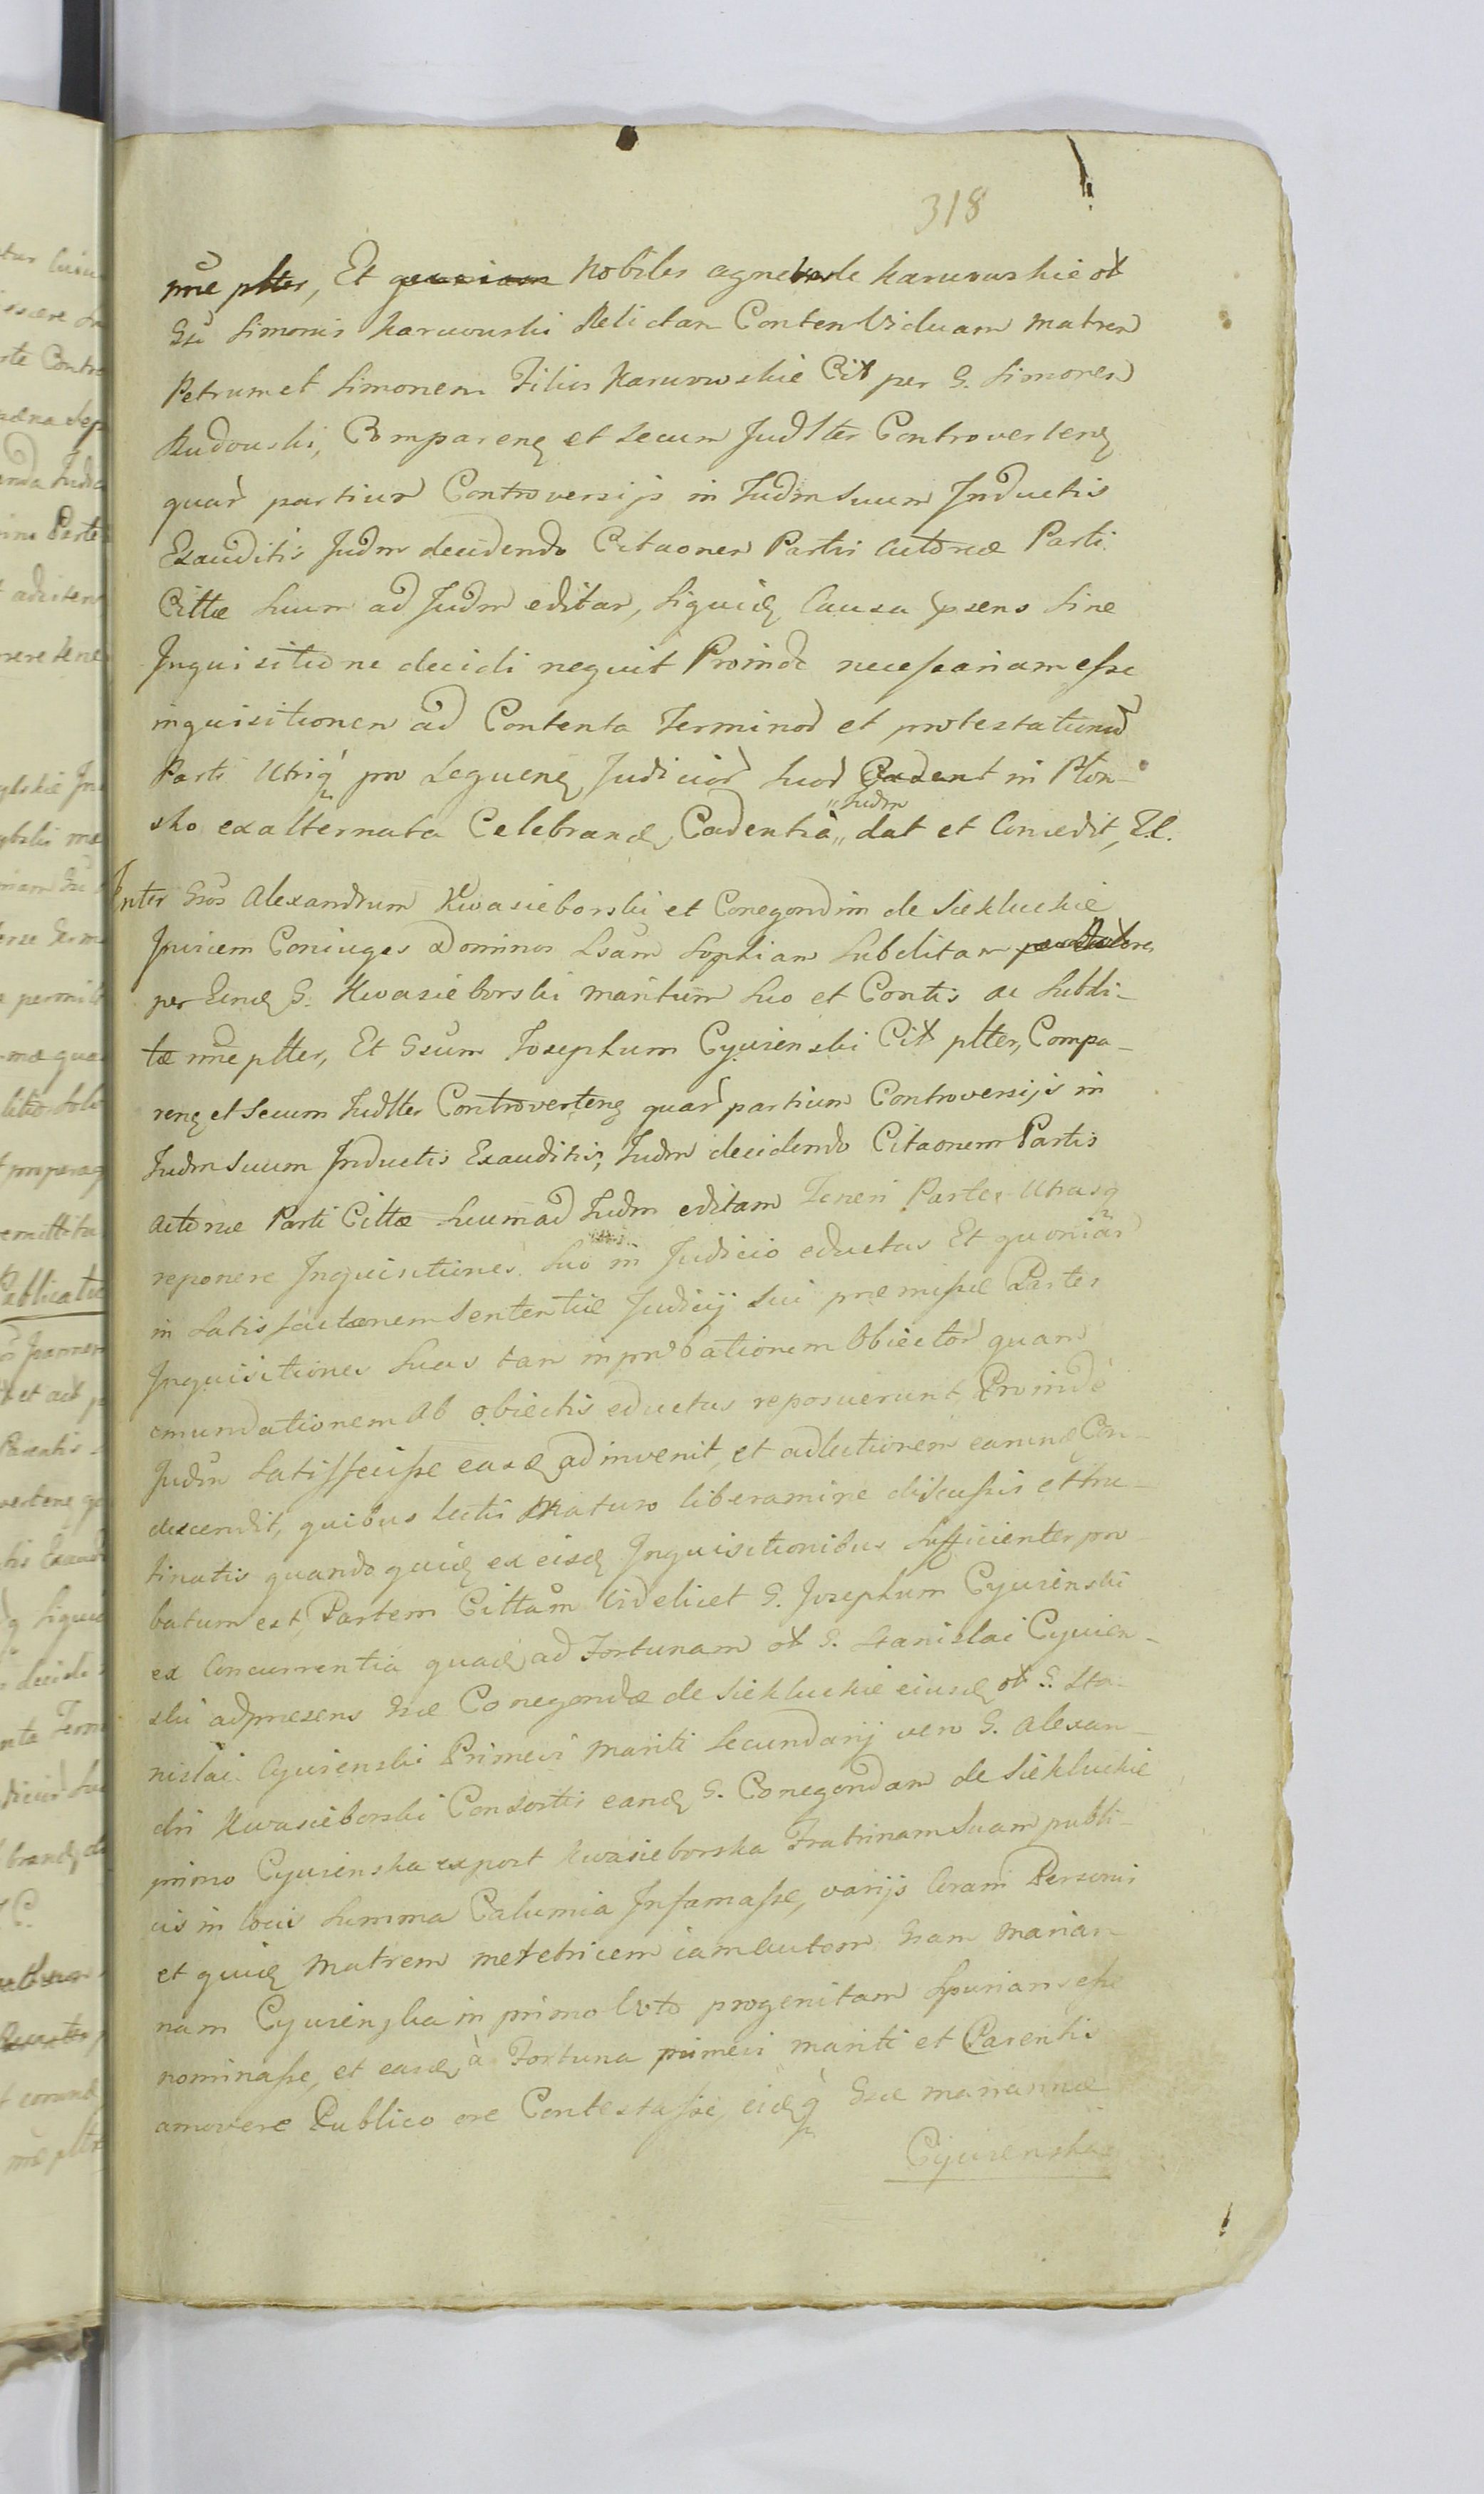 318
nne plter, Et Nobiles Karwowskie ol
Gsi Simonis Karwowski Relictam Conten Viduam matrem
Petrum et Simonem Filios Karwowskie Cit per G. Simonem
Rudowski, Comparenq et Secum Judlter Controvertenq
quar partium Controversijs in Judm suum Inductis
Exauditis Judm decidendo Citaonem Partis Actoreæ Parti
Cittæ suum ad Judm editam, siquidq Causa pxsens sine
Inquisitione decidi nequit Proinde necessariam esse
inquisitionem ad Contenta Terminor et protestationum
Parti Utriq pro sequenq Judicior suor Cadent in Plon-
sko ex alternata Celebrandq, Cadentia „Judm„ dat et Concedit, E.C.
Inter Gsos Alexandrum Kwasieborski et Conegondim de Siekluckie
Invicem Coniuges Dominos Lsam Sophiam Subditam
per Eundq G. Kwasieborski maritum suo et Contis ac Subdi-
tæ nne plter, Et Gsum Josephum Cywienski Cit plter, Compa-
renq et Secum Judlter Controvertenq quar partium Controversijs in
Judm suum Inductis Exauditis, Judm decidendo Citaonem Partis
actoreæ Parti Cittæ suum ad Judm editam Teneri Partes Utrasq
reponere Inquisitiones suo in Judicio eductas Et quoniam
in Satisfactaonem Sententiæ Judicij sui præmissæ Partes
Inquisitiones suas tam in probationem Obiector quam
emundationem ab obiectis eductas reposuerunt Proinde
Judm Satisfecisse easdq adinvenit, et ad lectionem earundq Con-
descendit, quibus lectis Maturo liberamine discussis et tru-
tinatis quandoquidq ex eisdq Inquisitionibus Sufficienter pro
batum est, Partem Cittam Videlicet G. Josephum Cywienski
ex Concurrentia quadq ad Fortunam ol G. Stanislai Cywien-
ski ad præsens Gsæ Conegondæ de Siekluckie eiusdq ol G. Sta-
nislai Cywienski Primevi mariti Secundarij vero G. Alexan-
dri Kwasieborski Consortis eandq G. Conegondam de Siekluckie
primo Cywienska ex post Kwasieborska Fratrinam suam publi-
cis in locis Summa Calumia Infamasse, varijs Coram Personis
et quidq matrem meretricem iam autem Gsam Marian-
nam Cywienska in primo Voto progenitam Spuriam esse
nominasse, et easdq à Fortuna primevi mariti et Parentis
amovere Publico ore Contestasse, eidqq Gsæ Mariannæ
Cywienska